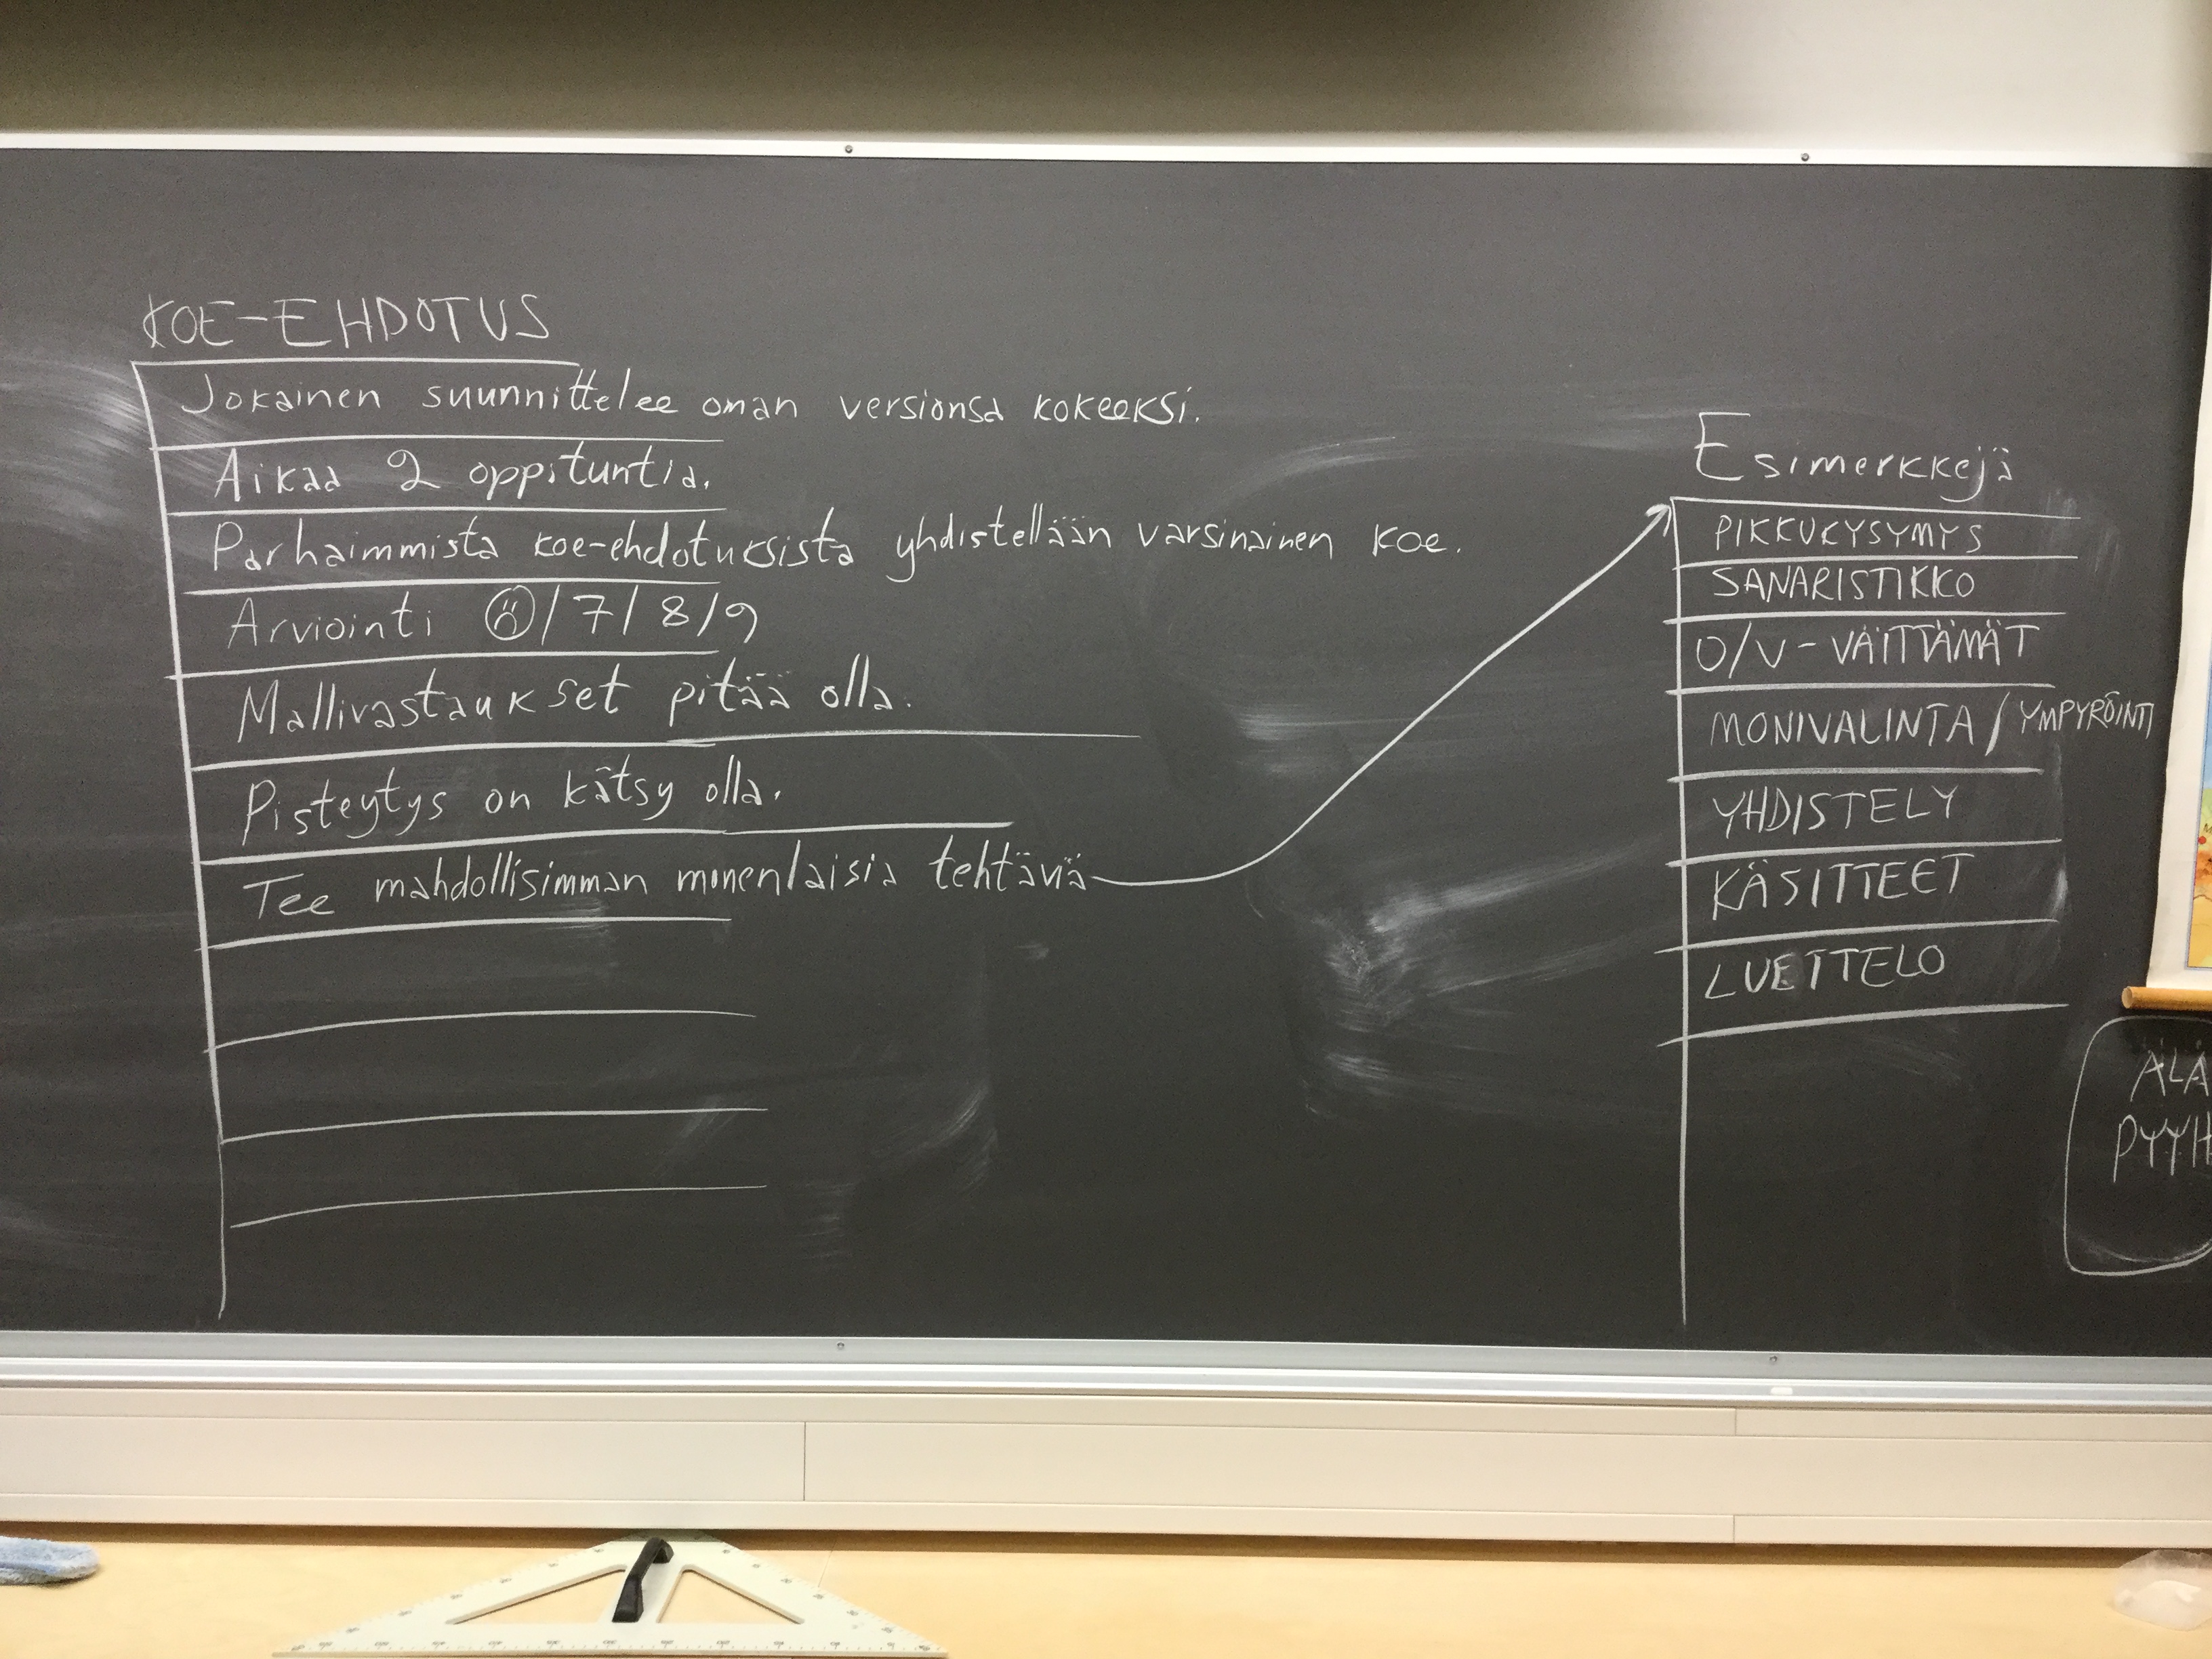 KOE-EHDOTUS
Jokainen suunnittelee oman versionsa kokeeksi.
Aikaa 2 oppituntia.
Parhaimmista koe-ehdotuksista yhdistellään varsinainen koe.
Arviointi ☹/7/8/9
Mallivastaukset pitää olla.
Pisteytys on kätsy olla.
Tee mahdollisimman monenlaisia tehtäviä
Esimerkkejä
PIKKUKYSYMYS
SANARISTIKKO
O/V-VÄITTÄMÄT
MONIVALINTA/YMPYRÖINTI
YHDISTELY
KÄSITTEET
LUETTELO
ÄLÄ
PYYH